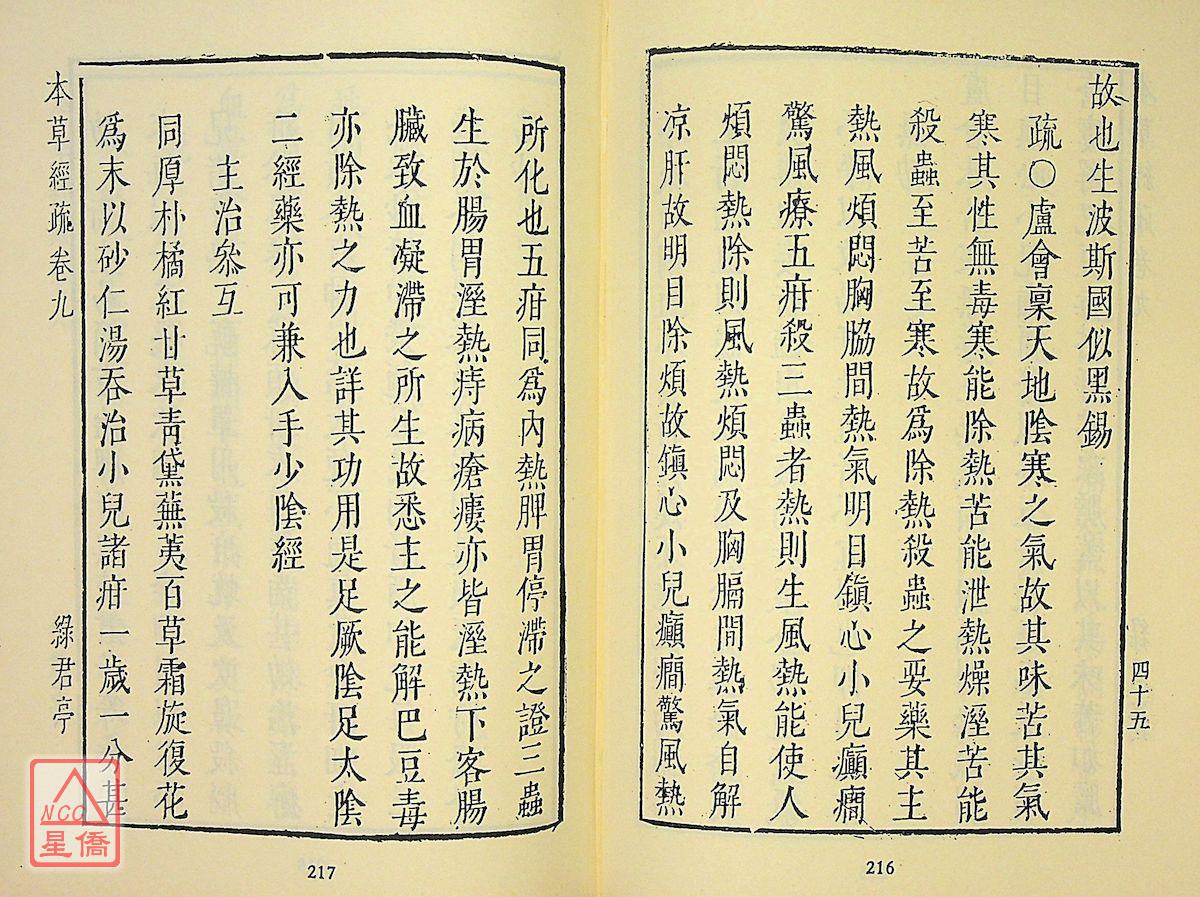 故也生波斯國似黑錫
疏○盧會稟天地陰寒之氣故其味苦其氣
寒其性無毒寒能除熱苦能泄熱燥溼苦能
殺蟲至苦至寒故爲除熱殺蟲之要藥其主
熱風煩悶胸脇間熱氣明目鎮心小兒癲癎
驚風療五疳殺三蟲者熱則生風熱能使人
煩悶熱除則風熱煩悶及胸膈間熱氣自解
凉肝故明目除煩故鎮心小兒癲癎驚風熱
四十五
216
所化也五疳同爲內熱脾胃停滯之證三蟲
生於腸胃溼熱痔病瘡瘻亦皆溼熱下客腸
臟致血凝滯之所生故悉主之能解巴豆毒
亦除熱之力也詳其功用是足厥陰足太陰
二經藥亦可兼入手少陰經
主治參互
同厚朴橘紅甘草靑黛蕪荑百草霜旋復花
爲末以砂仁湯吞治小兒諸疳一歲一分甚
本草經疏卷九
綠君亭
217
NCC
星僑